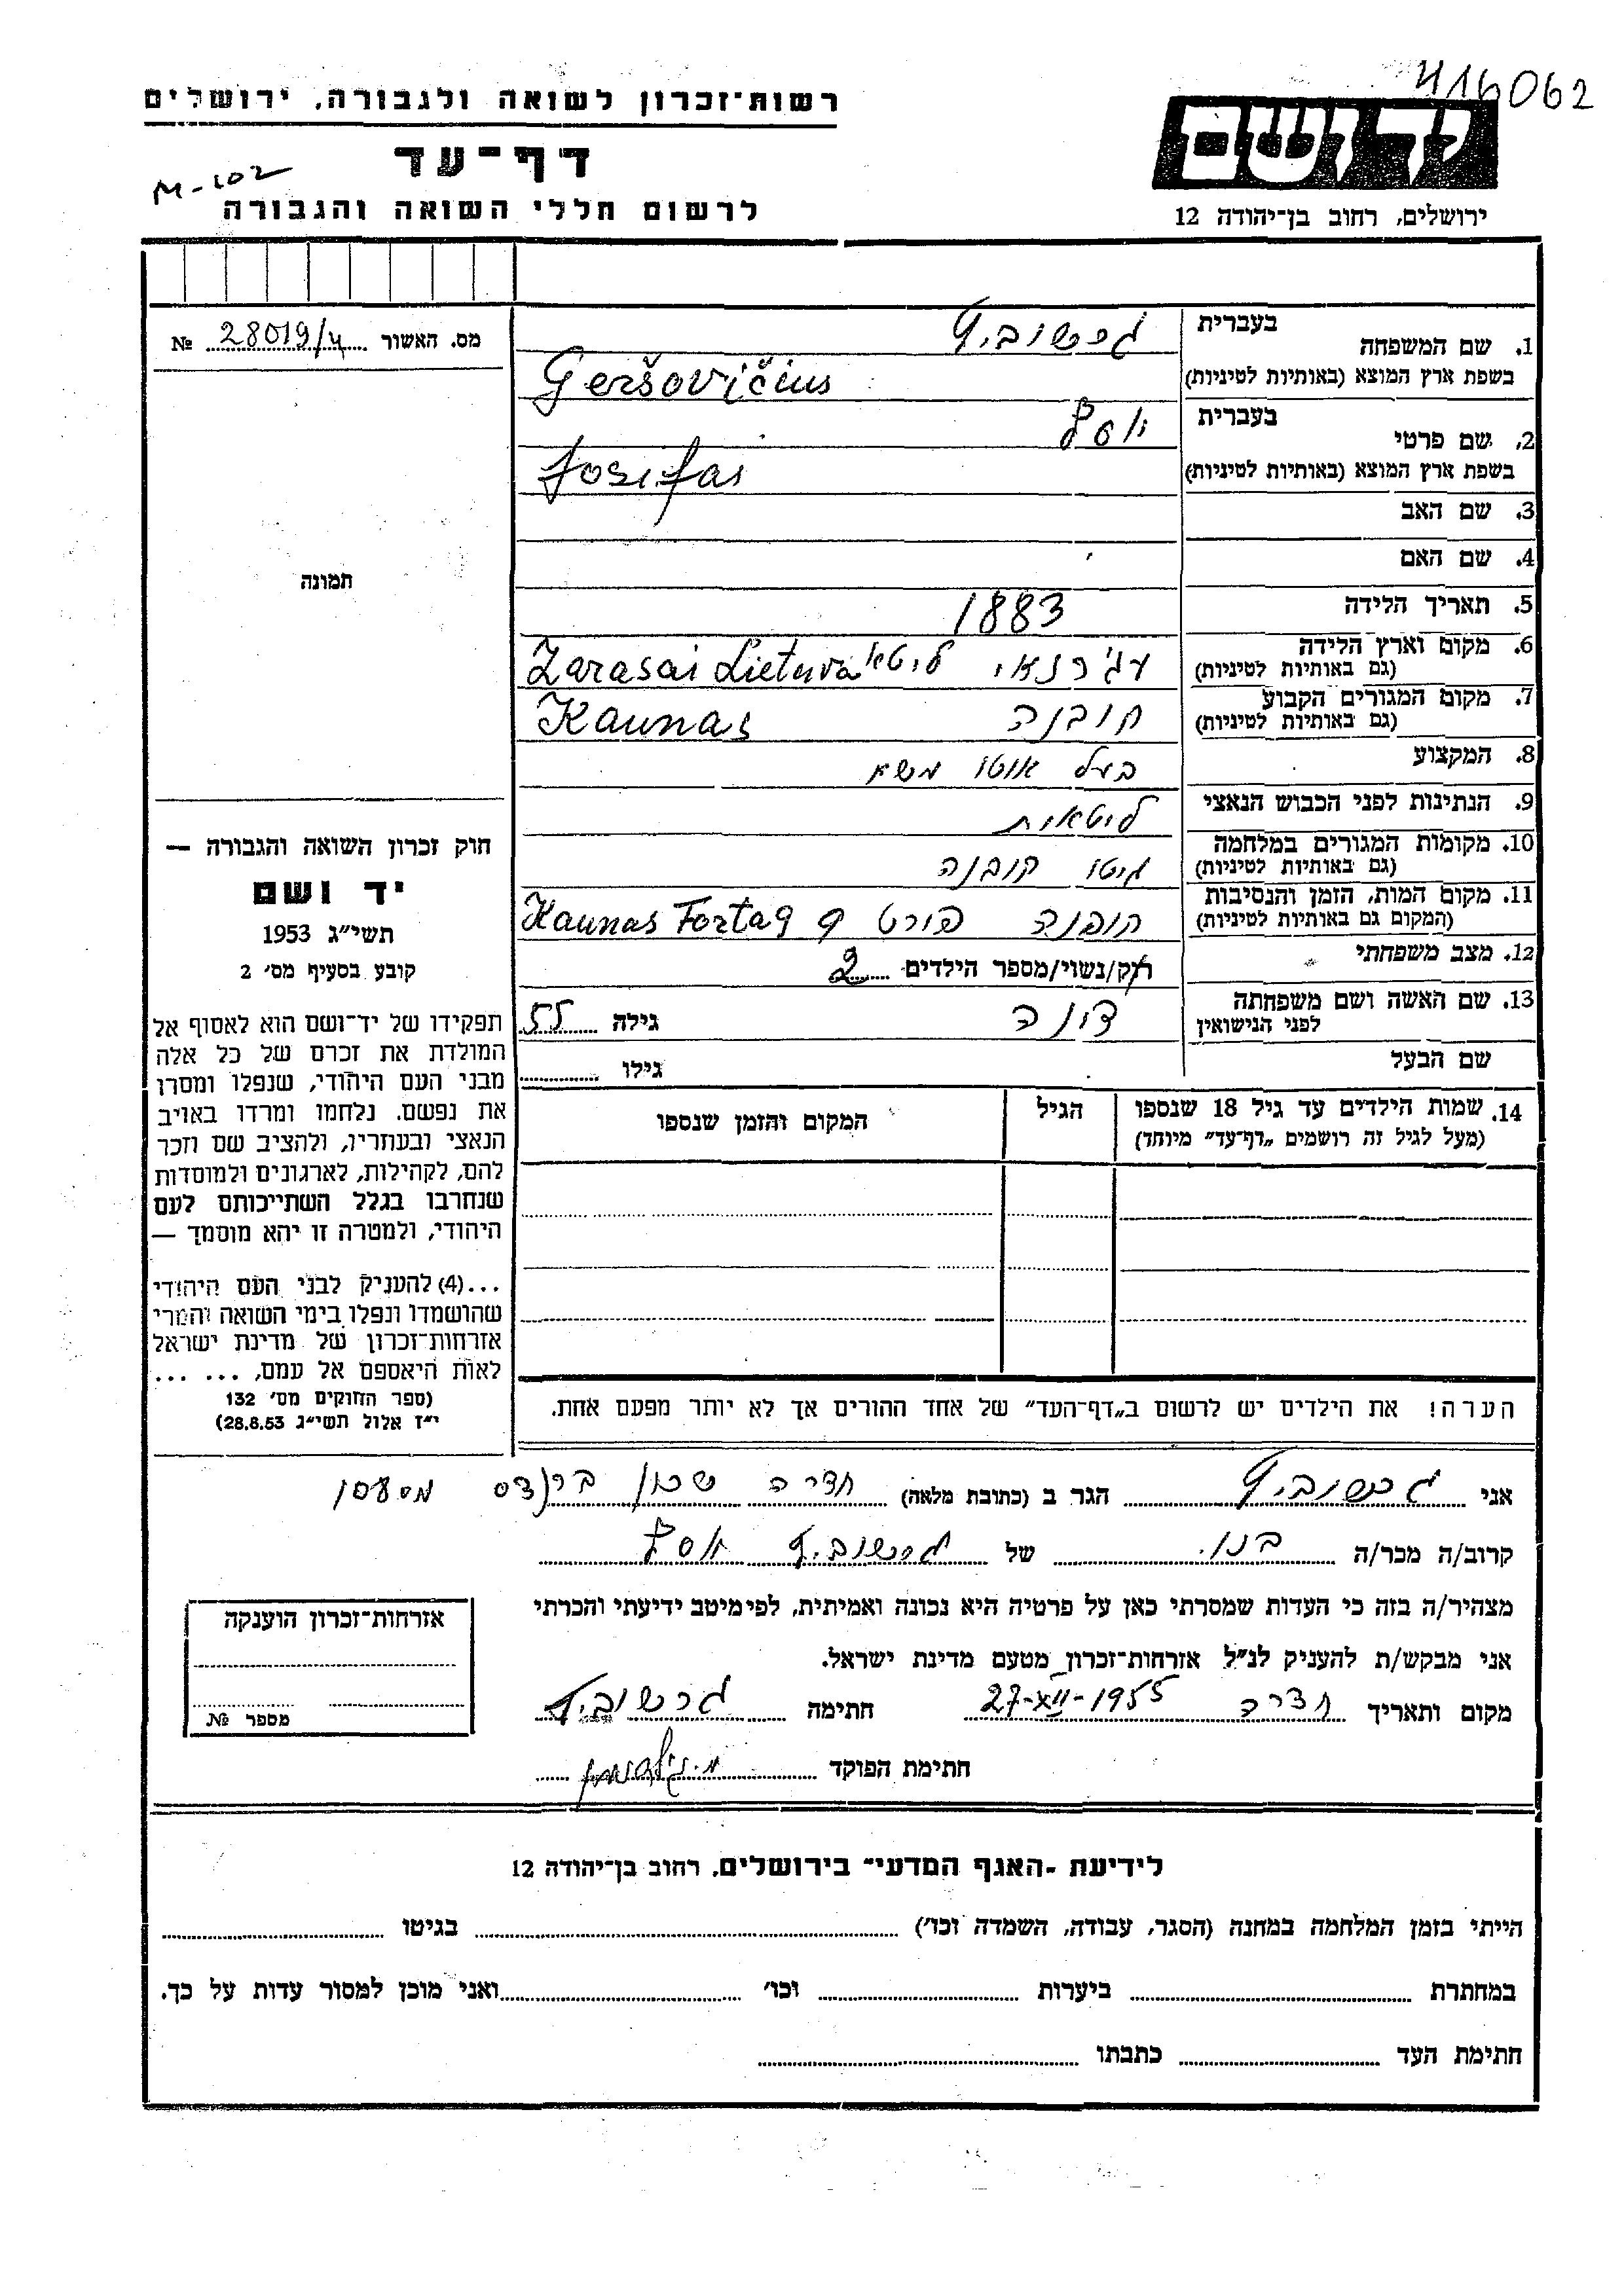 416062
רשות־זכרון לשואה ולגבורה, ירושלים
דף־עד
M-102
לרשום חללי השואה והגבורה
ידושם
ירושלים, רחוב בן־יהודה 12
מס. האשור 28019/4 №
תמונה
חוק זכרון השואה והגבורה —
יד ושם
תשי״ג 1953
קובע בסעיף מס׳ 2
תפקידו של יד־ושם הוא לאסוף אל
המולדת את זכרם של כל אלה
מבני העם היהודי, שנפלו ומסרו
את נפשם. נלחמו ומרדו באויב
הנאצי ובעוזריו, ולהציב שם וזכר
להם, לקהילות, לארגונים ולמוסדות
שנחרבו בגלל השתייכותם לעם
היהודי, ולמטרה זו יהא מוסמך —
...(4) להעניק לבני העם היהודי
שהושמדו ונפלו בימי השואה והמרי
אזרחות־זכרון של מדינת ישראל
לאות היאספם אל עמם, ... ...
(ספר החוקים מס׳ 132
י״ז אלול תשי״ג 28.8.53)
1. שם המשפחה בעברית גרשוביץ
בשפת ארץ המוצא (באותיות לטיניות) Geršovičius
2. שם פרטי בעברית יוסף
בשפת ארץ המוצא (באותיות לטיניות) Josifas
3. שם האב
4. שם האם
5. תאריך הלידה 1883
6. מקום וארץ הלידה (גם באותיות לטיניות) ליטא Zarasai Lietuva
7. מקום המגורים הקבוע (גם באותיות לטיניות) קובנה Kaunas
8. המקצוע בעל אוטו משא
9. הנתינות לפני הכבוש הנאצי ליטאית
10. מקומות המגורים במלחמה (גם באותיות לטיניות) גיטו קובנה
11. מקום המות, הזמן והנסיבות (המקום גם באותיות לטיניות) קובנה פורט 9 Kaunas Fortas
12. מצב משפחתי רוק/נשוי/מספר הילדים 2
13. שם האשה ושם משפחתה לפני הנישואין גילה 55
שם הבעל גילו
14. שמות הילדים עד גיל 18 שנספו הגיל המקום והזמן שנספו
(מעל לגיל זה רושמים „דף־עד״ מיוחד)
הערה! את הילדים יש לרשום ב„דף־העד״ של אחד ההורים אך לא יותר מפעם אחת.
אני גרשוביץ הגר ב (כתובת מלאה) חדרה שכון ברנדס
קרוב/ה מכר/ה בנו. של גרשוביץ יוסף
מצהיר/ה בזה כי העדות שמסרתי כאן על פרטיה היא נכונה ואמיתית, לפי מיטב ידיעתי והכרתי
אני מבקש/ת להעניק לנ״ל אזרחות־זכרון מטעם מדינת ישראל.
מקום ותאריך חדרה 27-XII-1955 חתימה גרשוביץ
חתימת הפוקד
אזרחות־זכרון הוענקה
מספר №
לידיעת ־האגף המדעי״ בירושלים, רחוב בן־יהודה 12
הייתי בזמן המלחמה במחנה (הסגר, עבודה, השמדה וכו׳) בגיטו
במחתרת ביערות וכו׳ ואני מוכן למסור עדות על כך.
חתימת העד כתבתו